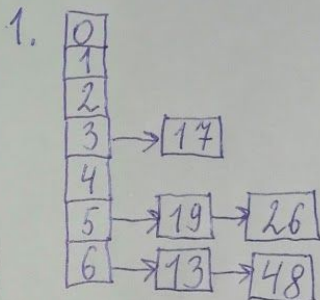 1.
0
1
2
3 → 17
4
5 → 19 → 26
6 → 13 → 48